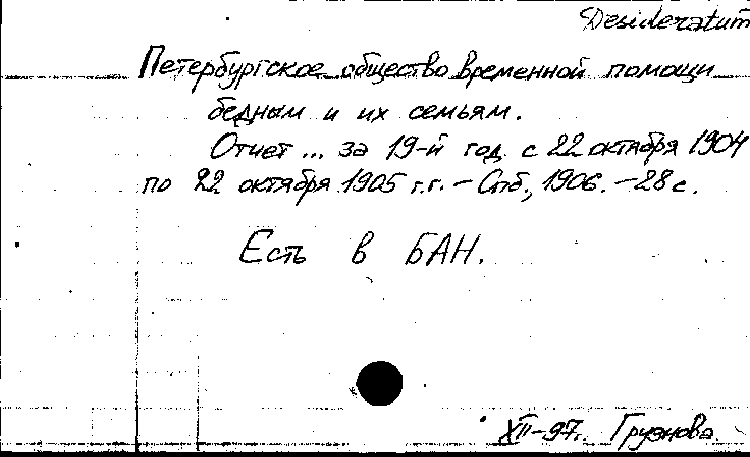 Desideratum
Петербургское общество временной помощи
бедным и их семьям.
Отчет ... за 19-й год с 22 октября 1904
по 22 октября 1905 г.г. - Спб., 1906. - 28 с.
Есть в БАН.
XII-97г. Грузнова